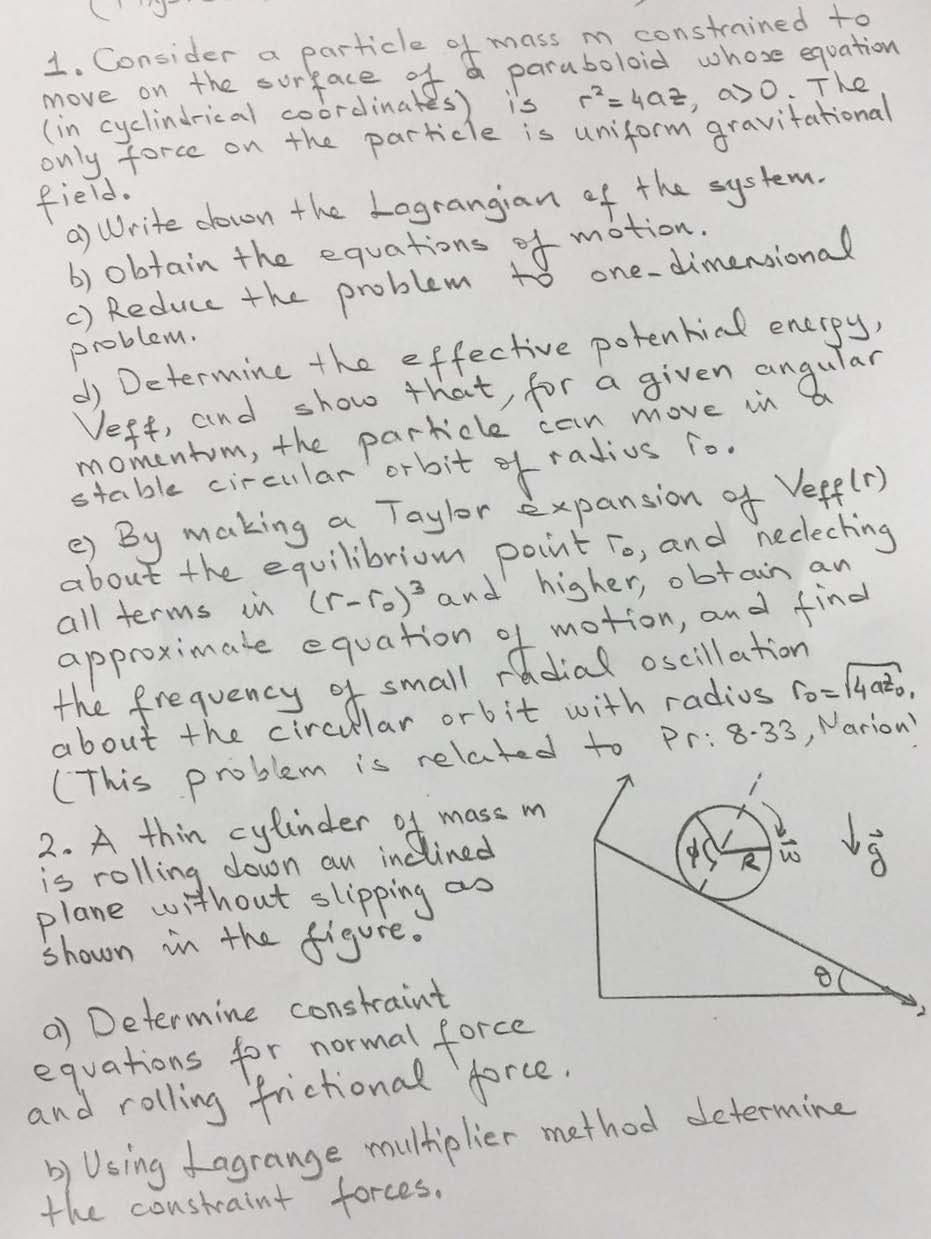 1. Consider a particle of mass m constrained to
move on the surface of a paraboloid whose equation
(in cyclindrical coordinates) is r²=4az, a>0. The
only force on the particle is uniform gravitational
field.
a) Write down the Lagrangian of the system.
b) obtain the equations of motion.
c) Reduce the problem to one-dimensional
problem.
d) Determine the effective potential energy,
Veff, and show that, for a given angular
momentum, the particle can move in a
stable circular orbit of radius r₀.
e) By making a Taylor expansion of Veff(r)
about the equilibrium point r₀, and neclecting
all terms in (r-r₀)³ and higher, obtain an
approximate equation of motion, and find
the frequency of small radial oscillation
about the circular orbit with radius r₀=√4az₀.
(This problem is related to Pr: 8-33, Marion)
2. A thin cylinder of mass m
is rolling down an inclined
plane without slipping as
shown in the figure.
ϕ R w⃗ g⃗
θ
a) Determine constraint
equations for normal force
and rolling frictional force.
b) Using Lagrange multiplier method determine
the constraint forces.